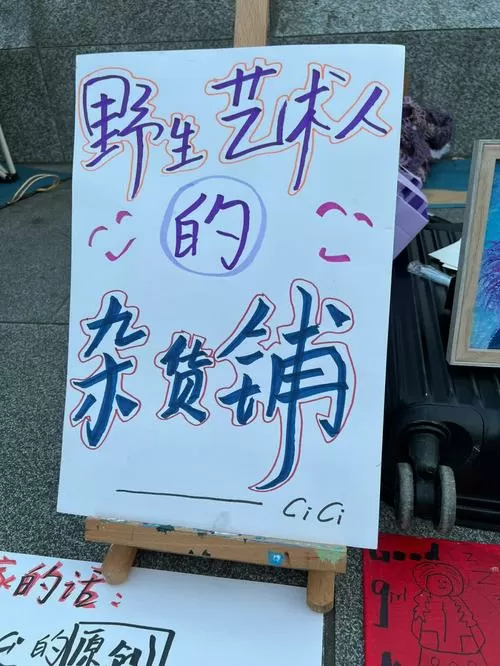 野生艺术人
的
杂货铺
CiCi
家的话：
的原创
Good
girl